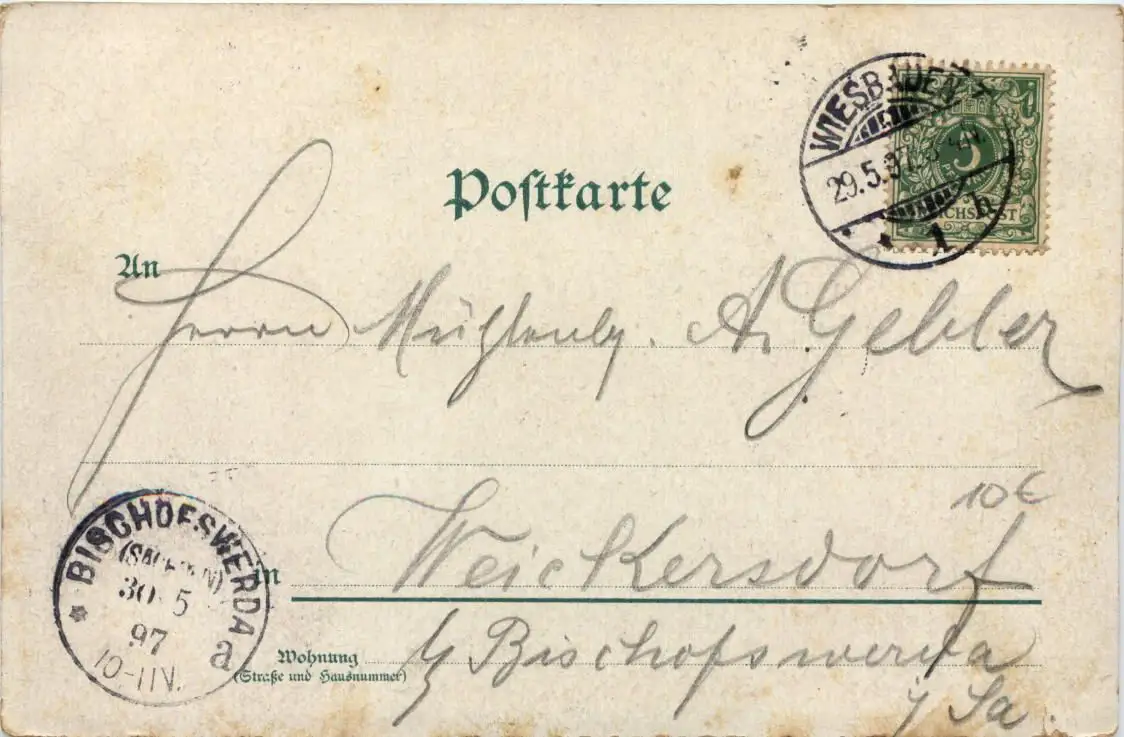 Postkarte
WIESBADEN
29.5.97. 3-4N.
1 h
5
REICHSPOST
An
Herrn A. Gebler
10 €
in Weickersdorf
BISCHOFSWERDA
(SACHSEN)
30. 5
97
10-11N.
a
Wohnung
(Straße und Hausnummer)
b/ Bischofswerda
i/ Sa.